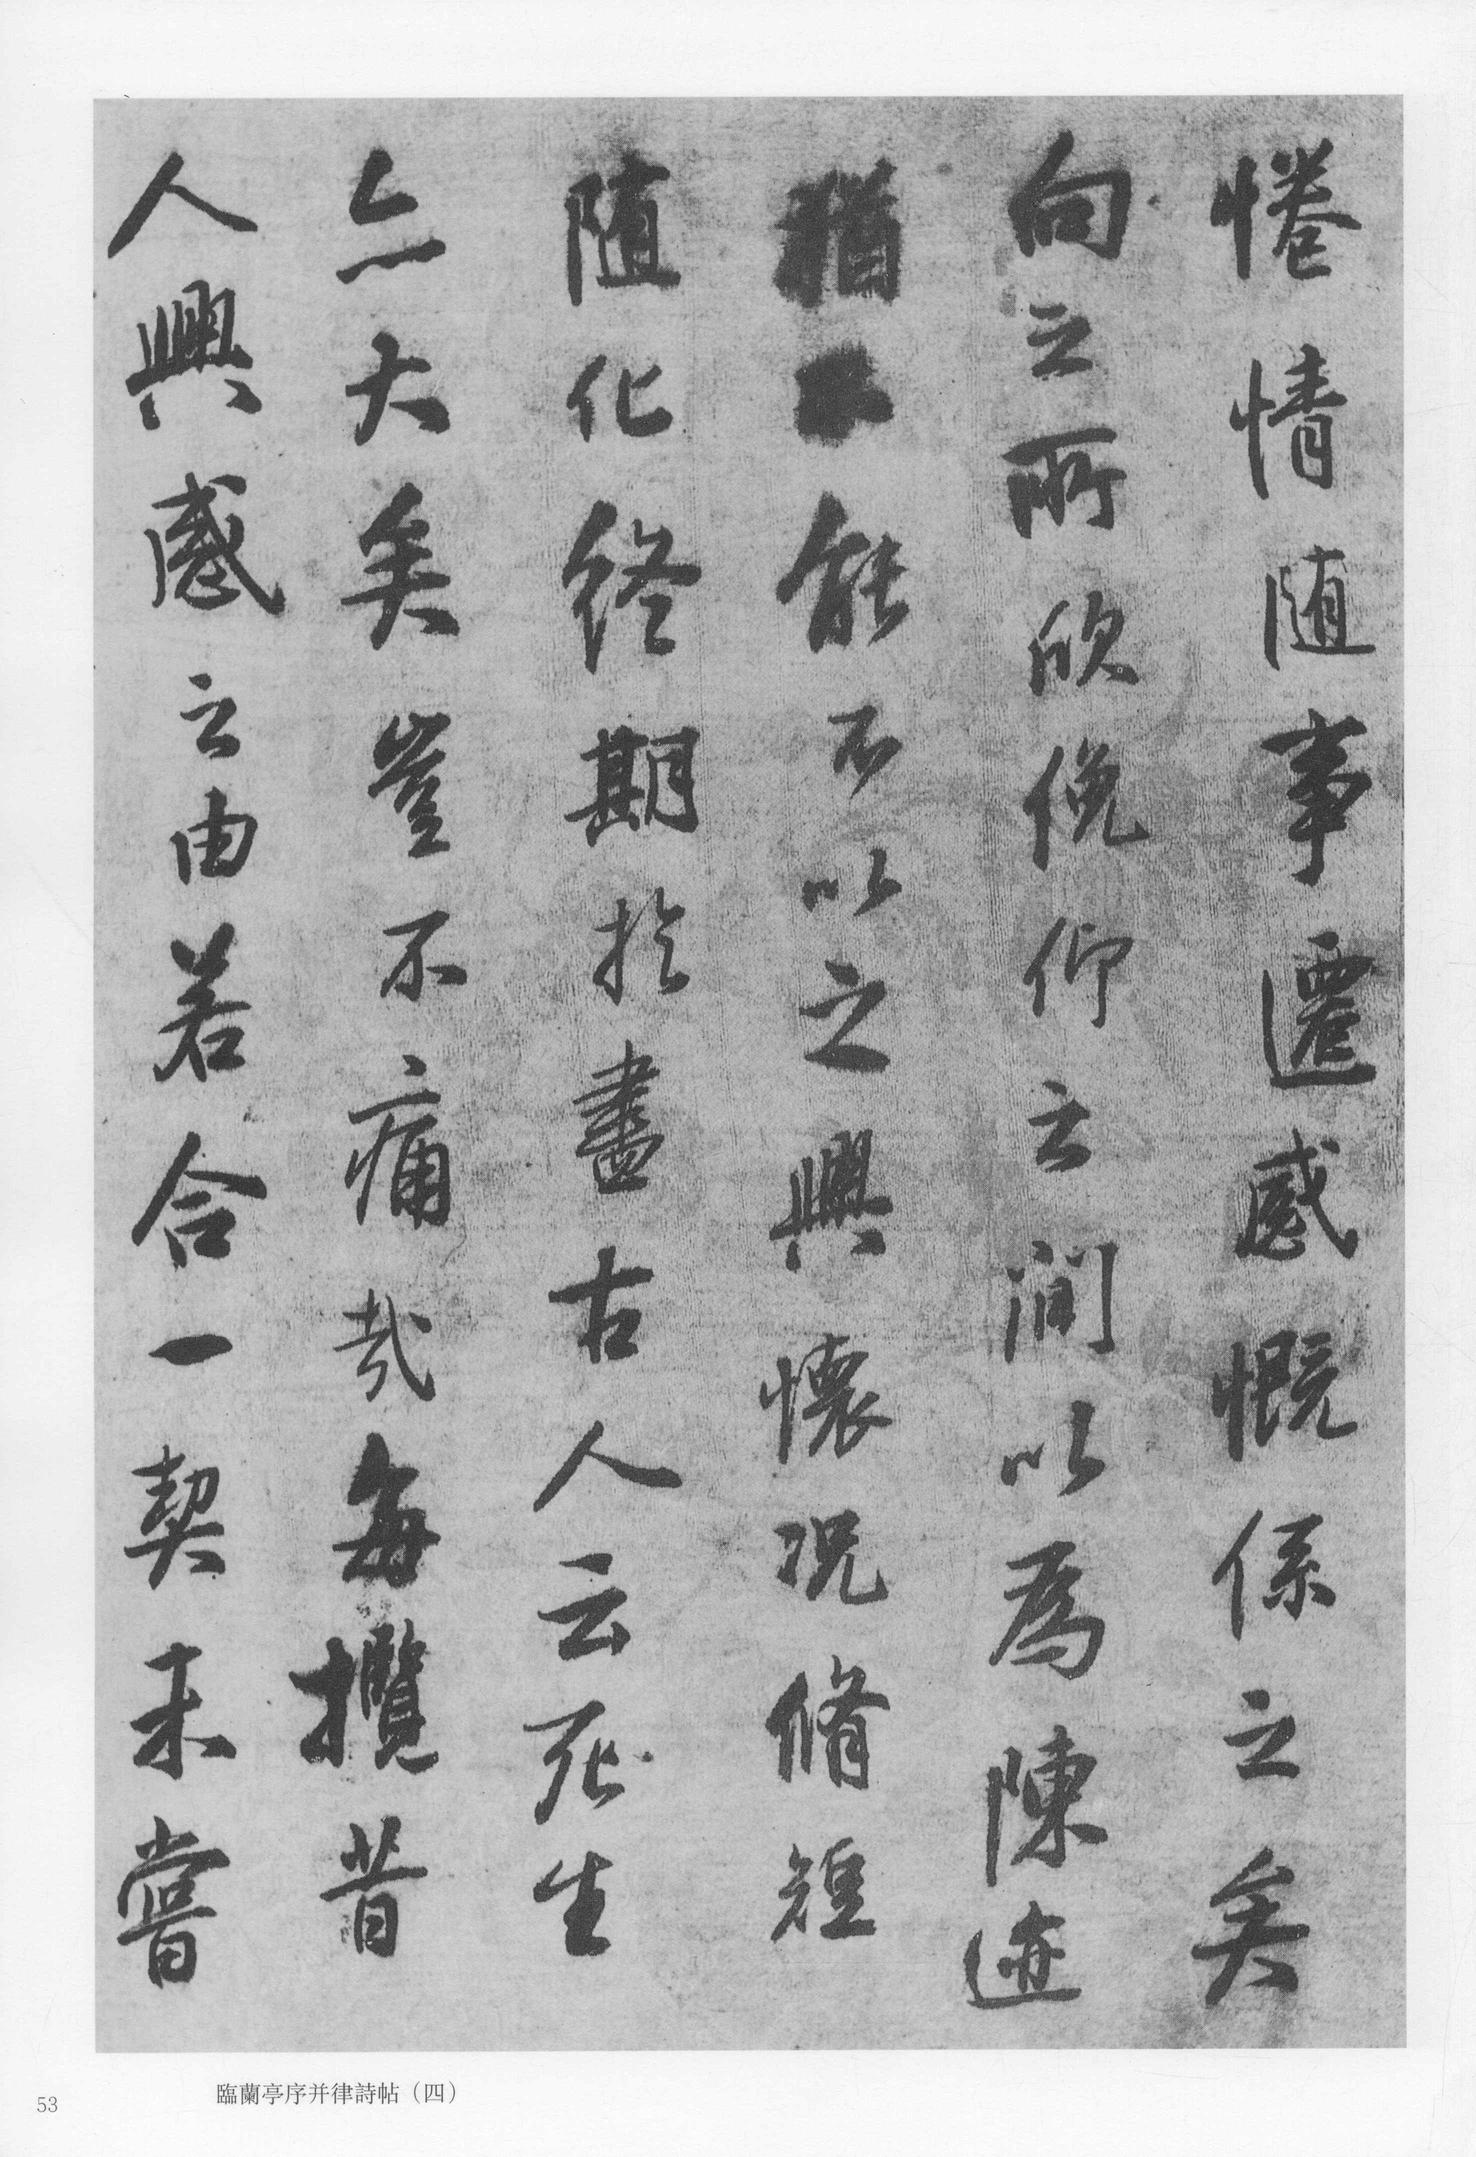 惓情随事遷感慨係之矣
向之所欣俛仰之間以為陳迹
猶不能不以之興懷況脩短
随化終期於盡古人云死生
亦大矣豈不痛哉每攬昔
人興感之由若合一契未嘗
臨蘭亭序并律詩帖（四）
53